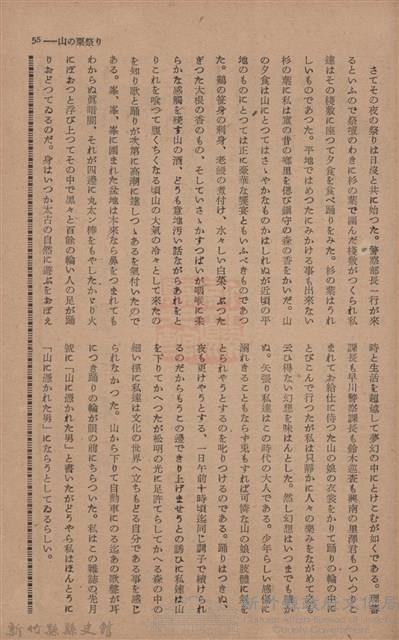 55——山の粟祭り
さてその夜の祭りは日沒と共に始つた。警察部長一行が來
るといふので祭壇のわきに杉の葉で圍んだ棧敷がつくられ私
達はその棧敷に座つて夕食を食べ踊りをみた。杉の葉はうれ
しいものであつた。平地ではめつたにみかける事も出來ない
杉の葉に私は童の昔の鄕里を偲び鎭守の森の香をかいだ。山
の夕食は山にとつてはさゝやかなものかはしれぬが近頃の平
地のものにとつては正に豪華な饗宴ともいふべきものであつ
た。鷄の笹身の刺身、老鰻の煮付け、水々しい白菜、ぶつた
ぎつた大根の香のもの、そしていさゝかすつぱいが咽喉に柔
らかな感觸を殘す山の酒、どうも意地汚い話ながらあれをと
りこれを喰つて腹くちくなる頃山の大氣の冷々として來たの
を知り歌と踊りが次第に高潮に達しつゝあるを氣付いたので
ある。峯、峯、峯に圍まれた盆地は本來なら鼻をつまれても
わからぬ眞暗闇、それが四邊に丸太ン棒をもやしたかゞり火
にぼおつと浮び上つてその中で黑々と百餘の輪い人の足が踊
りおどつてゐるのだ。身はいつか太古の自然に遊ぶをおぼえ
時と生活を超越して夢幻の中にとけこむが如くである。理蕃
課長も早川警察課長も鈴木巡査も興南の里澤君もついつりと
まれてお給仕に侍つた山の娘の衣裳をかりて踊りの輪の中に
とびこんで行つたが私は只靜かに人々の樂みをながめてゐて
云ひ得ない幻想を味はんとした。然し幻想はいつまでもつか
ぬ。矢張り私達はこの時代の大人である。少年らしい感傷に
溺れきることもならず兎もすれば可憐な山の娘の肢體に眼を
とられやうとするのを叱りつけるのである。踊りはつきぬ、
夜も更けやうとする、一日午前十時頃迄同じ調子で續けられ
るのだからもうこの邊できり上げませうとの誘ひに私達は山
を下りてかへつたが松明の光に足許てらしてかへる森の中の
細い徑に私達は文化の世界へ立ちもどる自分である事を感じ
られなかつた。山から下りて自動車にのる迄あの歌聲が耳
につき踊りの輪が眼の前にちらついた。私はこの雜誌の先月
號に「山に憑かれた男」と書いたがどうやら私はほんとうに
「山に憑かれた男」にならうとしてゐるらしい。
新竹縣縣史館